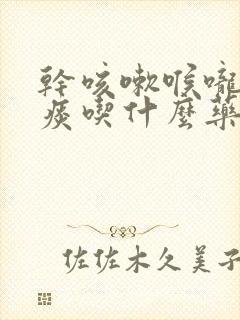 幹咳嗽喉嚨
痰喫什麼藥
佐佐木久美子